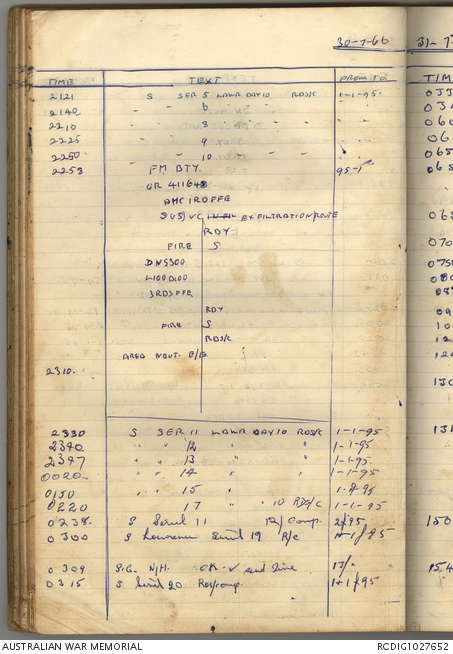 30-7-66
31-7
TIME TEXT FROM TO
2121 S SER 5 LAWR DAY10 RDS/C 1-1-95
2140 " " 6 " " "
2210 " " 8 " " "
2225 " " 9 " " "
2250 " " 10 " " "
2253 FM BTY. 95-1
GR 411648
AMC 1ROFFE
SUS/VC EXFILTRATION/ROUTE
RDY
FIRE S
DN5300
L100D100
3RDSFFE
RDY
FIRE S
RDS/C
AREA NEUT. E/E
2310.
2330 S SER 11 LAWR DAY10 RDS/C 1-1-95
2340 " " 12 " " 1-1-95
2347 " " 13 " " 1-1-95
0020 " " 14 " " 1-1-95
0150 " " 15 "
0220 17 " " 10 RDS/C 1-1-95
0238 S Serial 11 /Comp. 2/95
0300 S Lawrence Serial 19 R/C
0309 SIG. N/H. CM-V and Zine 13/-
0315 S Serial 20 Rds/comp. 1+1/95
TIM
AUSTRALIAN WAR MEMORIAL
RCDIG1027652